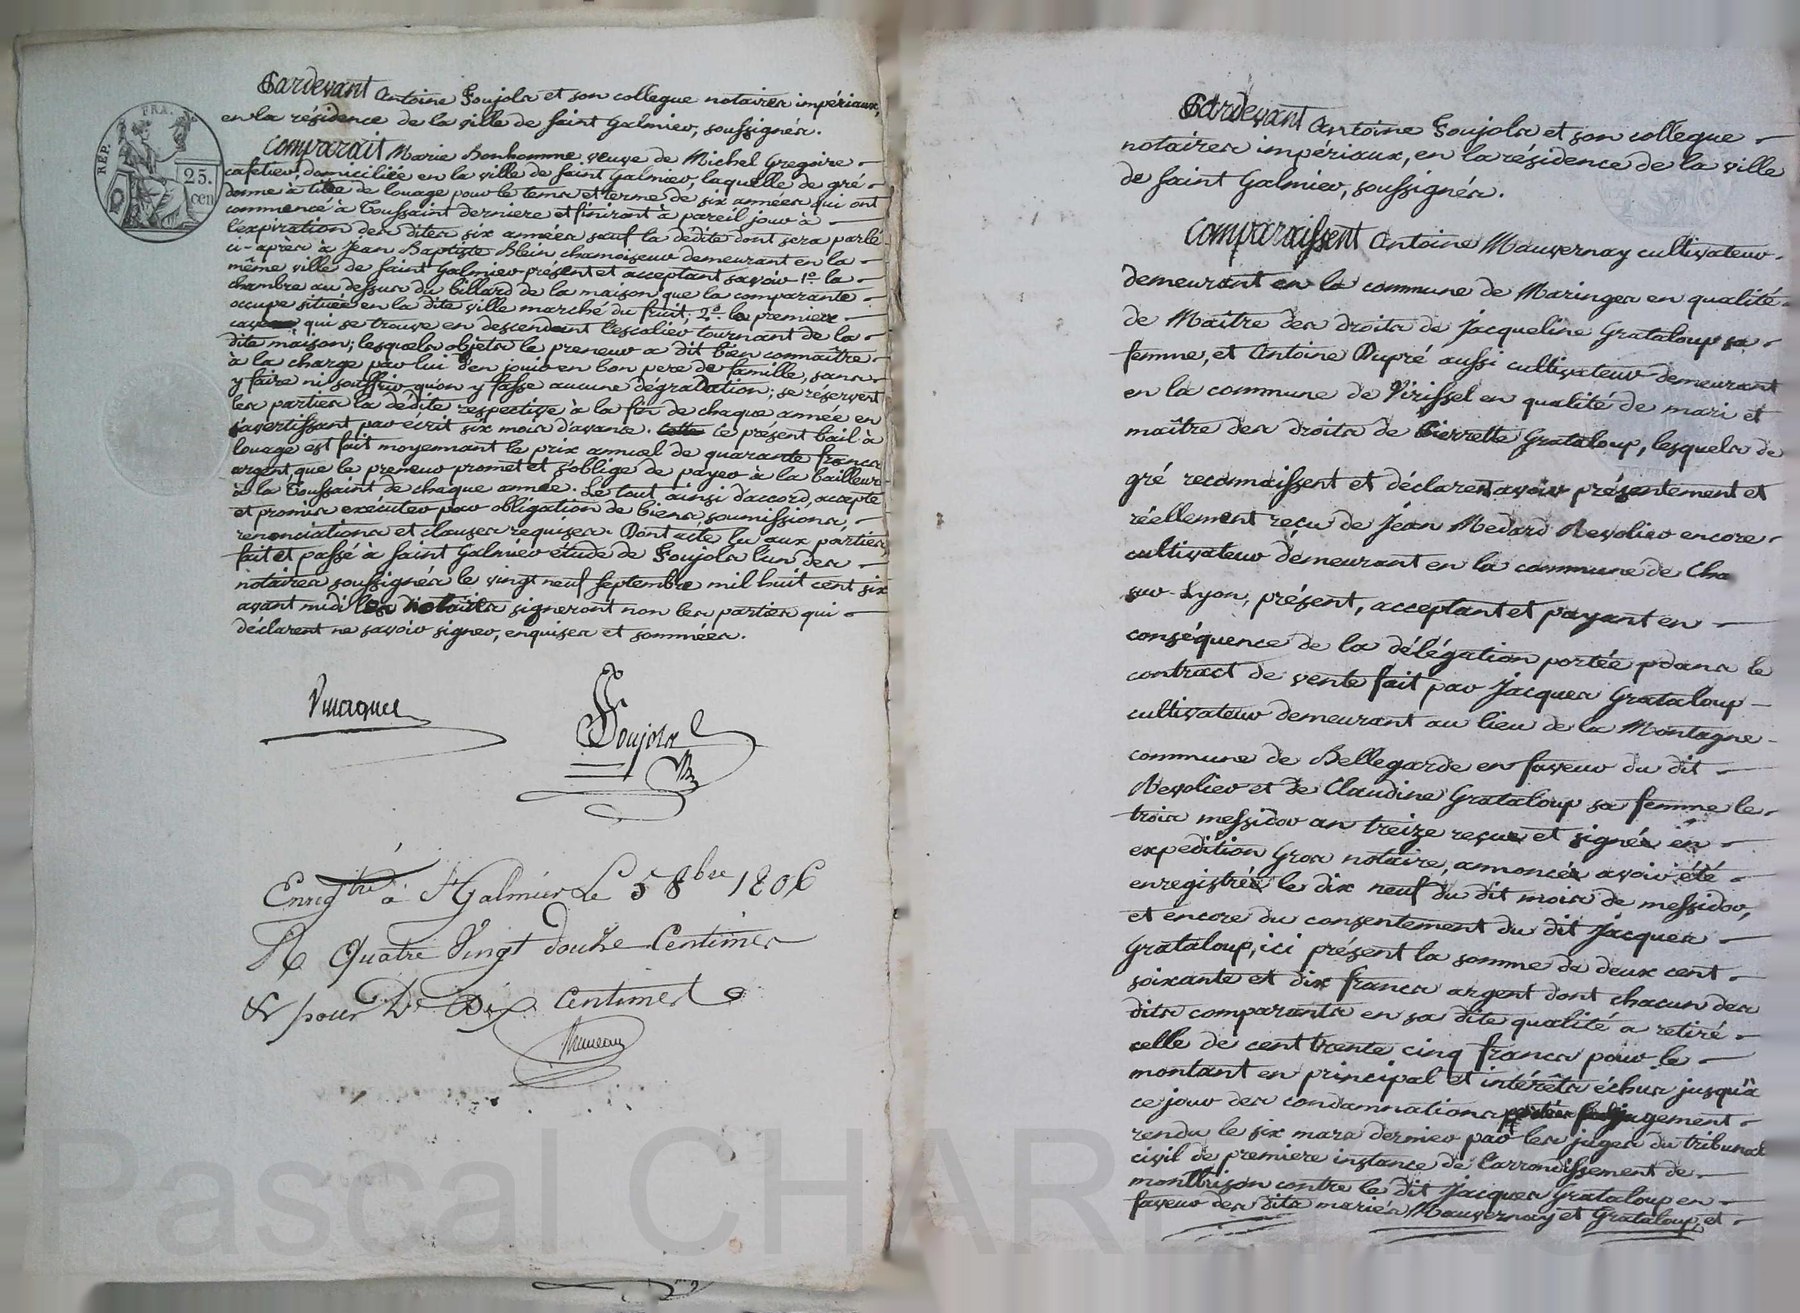 RÉP. FRA.
25.
cen
Pardevant Antoine Poujola et son collegue notaires impériaux,
en la résidence de la ville de Saint Galmier, soussignés.
Comparait Marie Bonhomme veuve de Michel Gregoire
cafetier, domiciliée en la ville de Saint Galmier, laquelle de gré
donne à titre de louage pour le tems et terme de six années qui ont
commencé à Toussaint derniere et finiront à pareil jour à
l'expiration des dites six années sauf la dédite dont sera parlé
ci-après à Jean Baptiste Blein chamoiseur demeurant en la
même ville de Saint Galmier présent et acceptant savoir 1o. la
chambre au dessus du billard de la maison que la comparante
occupe située en la dite ville marché du fruit. 2o. la premiere
cave qui se trouve en descendant l'escalier tournant de la
dite maison; lesquels objets le preneur a dit bien connaître
à la charge par lui d'en jouir en bon pere de famille, sans
y faire ni souffrir qu'on y fasse aucune dégradation; se réservent
les parties la dédite respective à la fin de chaque année en
s'avertissant par écrit six mois d'avance. ce présent bail à
louage est fait moyennant le prix annuel de quarante francs
argent que le preneur promet et s'oblige de payer à la bailleur
à la Toussaint de chaque année. Le tout ainsi d'accord, accepté
et promis executer pour obligation de biens, soumissions,
renonciations et clauses requises. Dont acte lu aux parties,
fait et passé à Saint Galmier étude de Poujola l'un des
notaires soussignés le vingt neuf septembre mil huit cent six
avant midi les notaires signeront non les parties qui
déclarent ne savoir signer, enquises et sommées.
Poujola
Enregtré à St Galmier Le 5 8bre 1806
R Quatre Vingt douze Centimes
& pour De Dix Centimes
Pardevant Antoine Poujola et son collegue
notaires impériaux, en la résidence de la ville
de Saint Galmier, soussignés.
Comparaissent Antoine Mauvernay cultivateur
demeurant en la commune de Maringes en qualité
de Maître des droits de Jacqueline Grataloup sa
femme, et Antoine Dupré aussi cultivateur demeurant
en la commune de Virissel en qualité de mari et
maître des droits de Pierrette Grataloup, lesquels de
gré reconnaissent et déclarent avoir présentement et
réellement reçu de Jean Medard Revolier encore
cultivateur demeurant en la commune de Cha
sur-Lyon, présent, acceptant et payant en
conséquence de la délégation portée pdans le
contract de vente fait par Jacques Grataloup
cultivateur demeurant au lieu de la Montagne
commune de Bellegarde en faveur du dit
Revolier et de Claudine Grataloup sa femme le
trois messidor an treize reçue et signée en
expédition Gros notaire, annoncée avoir été
enregistrée le dix neuf du dit mois de messidor,
et encore du consentement du dit Jacques
Grataloup, ici présent la somme de deux cent
soixante et dix francs argent dont chacun des
dits comparants en sa dite qualité a retiré
celle de cent trente cinq francs pour le
montant en principal et intérêts échus jusqu'à
ce jour des condamnations jugement
rendu le six mars dernier par les juges du tribunal
civil de premiere instance de l'arrondissement de
montbrison contre le dit Jacques Grataloup en
faveur des dits mariés Mauvernay et Grataloup, et
Pascal